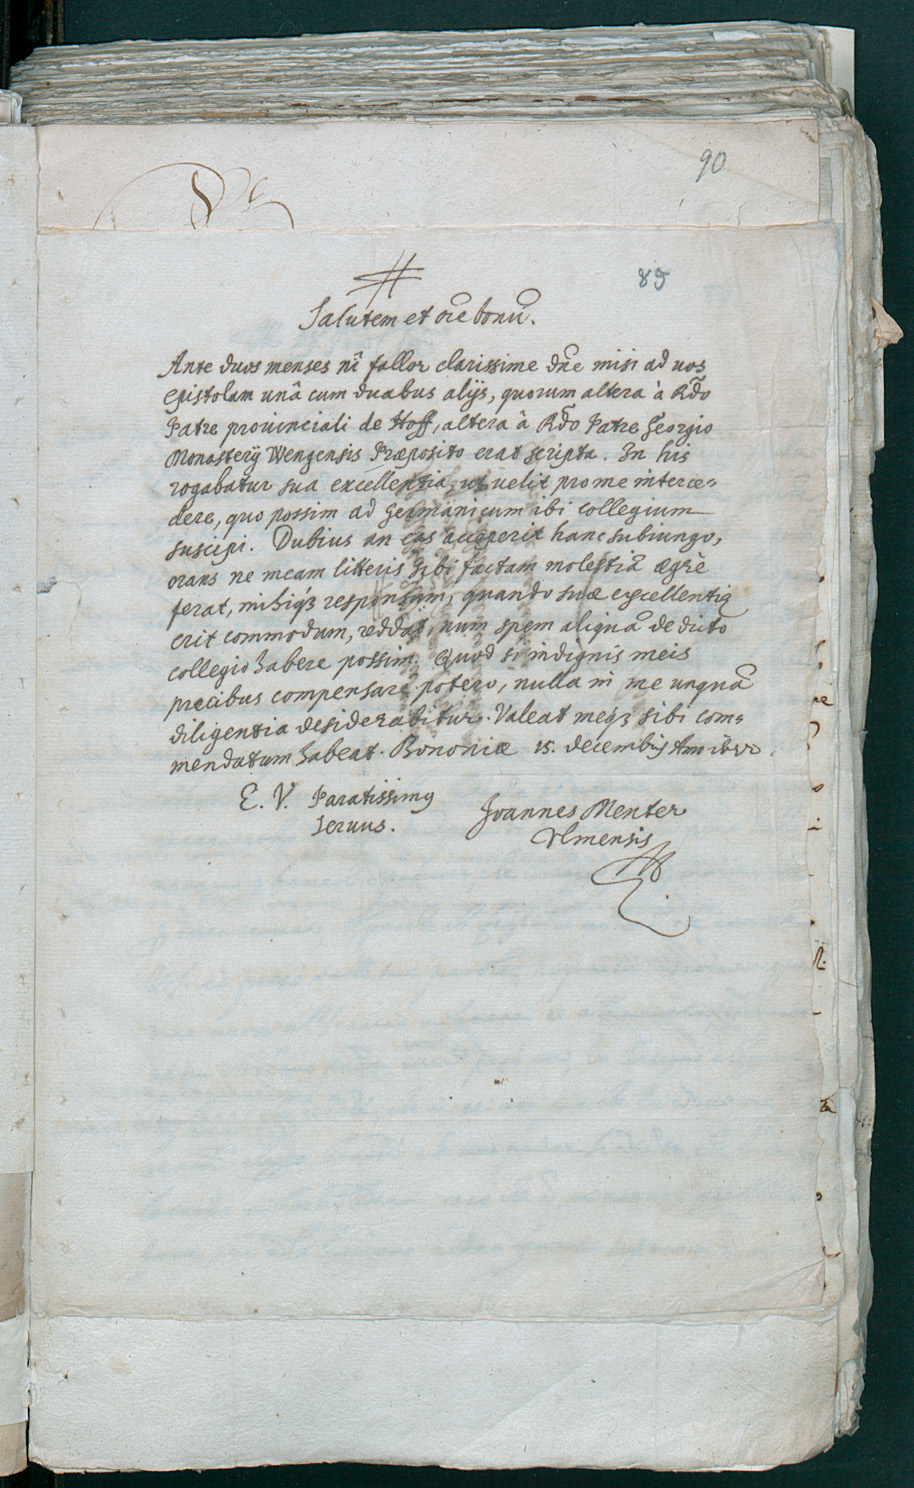 90
89
Salutem et oīe bonū.
Ante duos menses nī fallor clarissime dn̄e misi ad uos
epistolam unâ cum duabus alijs, quorum altera à Rdo
Patre prouinciali de Hoff, altera à Rdo Patre Georgio
Monasterij Wengensis Præposito erat scripta. In his
rogabatur sua excellentia, ut uelit pro me interce=
dere, quo possim ad Germanicum ibi collegium
suscipi. Dubius an eas acceperit hanc subiungo,
orans ne meam litteris sibi factam molestiā ægrè
ferat, mihiqȝ responsum, quando suæ excellentiæ
erit commodum, reddat, num spem aliquā de dicto
collegio habere possim. Quod si indignis meis
precibus compensare potero, nulla in me unquā
diligentia desiderabitur. Valeat meqȝ sibi com=
mendatum habeat. Bononiæ 15. decembris Anno
E. V. Paratissimus
seruus.
Joannes Menter
Vlmensis